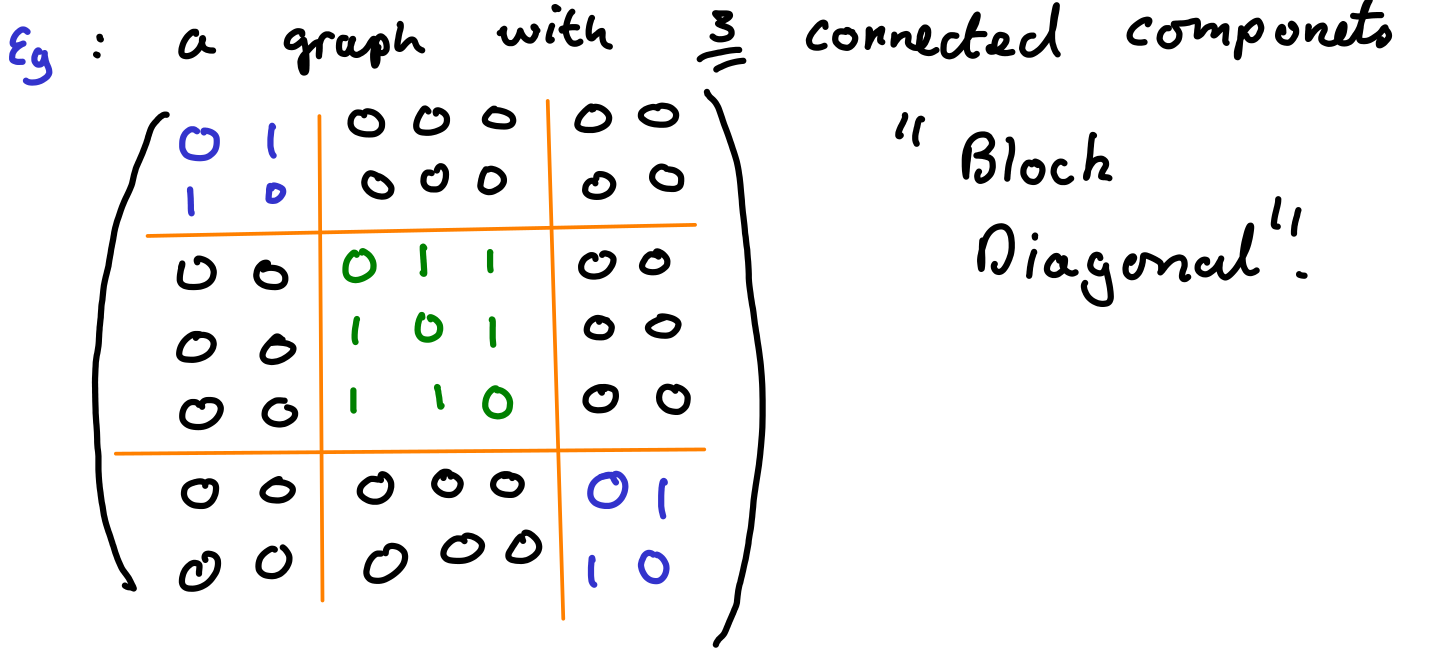 Eg : a graph with 3 connected componets
0 1 0 0 0 0 0
1 0 0 0 0 0 0
0 0 0 1 1 0 0
0 0 1 0 1 0 0
0 0 1 1 0 0 0
0 0 0 0 0 0 1
0 0 0 0 0 1 0
" Block
Diagonal".